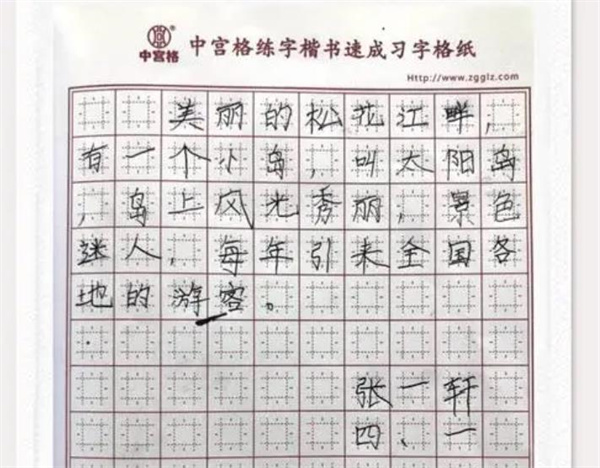 中宫格® 中宫格练字楷书速成习字格纸
Http://www.zgglz.com
美丽的松花江畔，
有一个小岛，叫太阳岛
，岛上风光秀丽，景色
迷人，每年引来全国各
地的游客。
张一轩
四、一